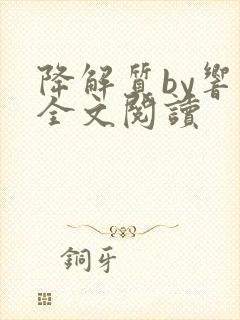 降解質by響
全文閱讀
銅牙